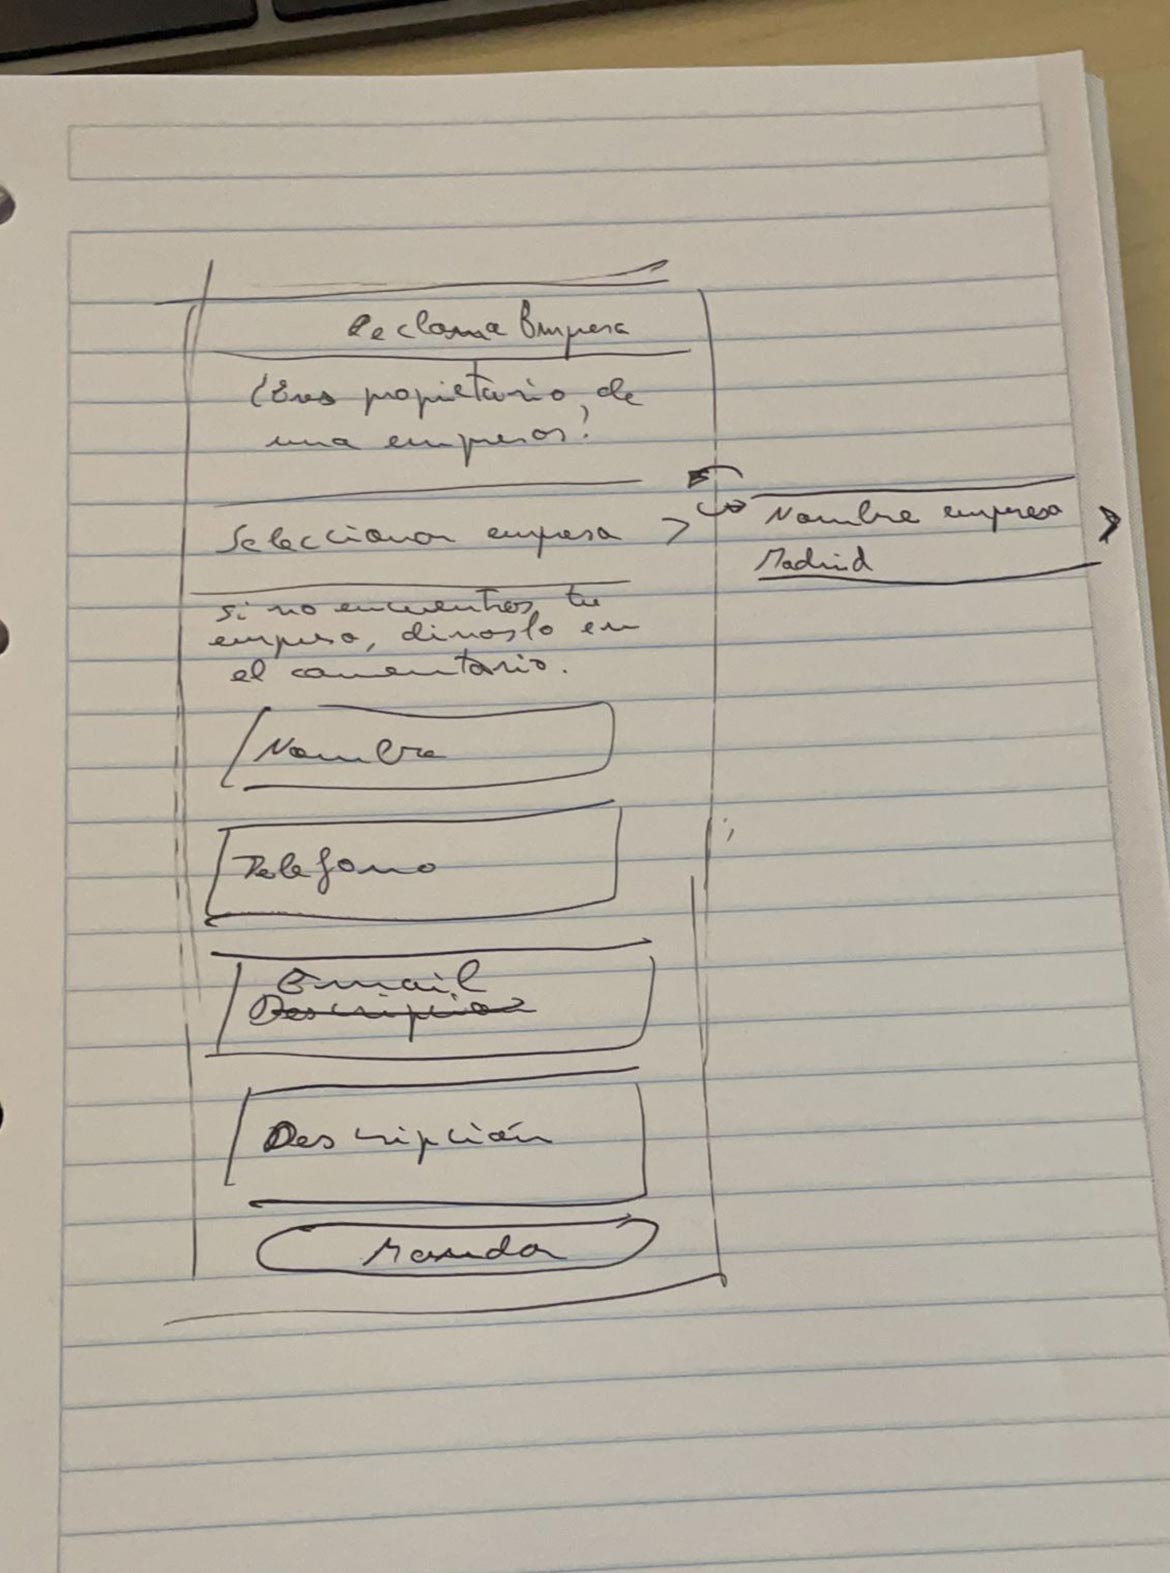 Reclama Empresa
¿Eres propietario de
una empresa?
Seleccionar empresa >
Nombre empresa >
Madrid
Si no encuentras tu
empresa, dinoslo en
el comentario.
Nombre
Telefono
Email
Descripcion
Descripción
Mandar